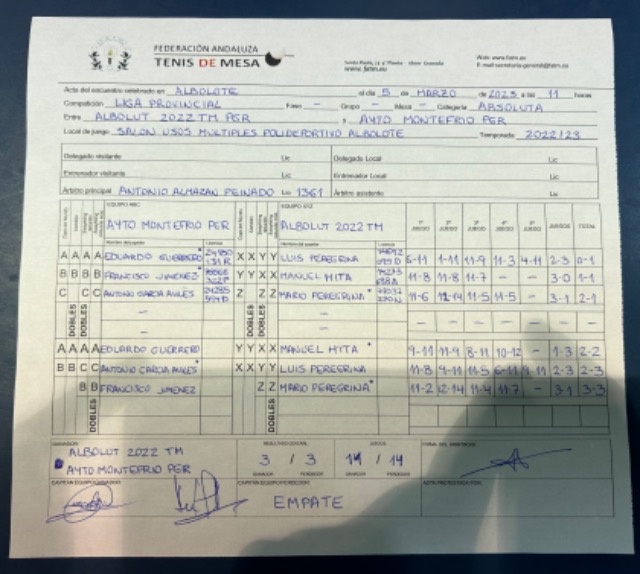 FEDERACIÓN ANDALUZA
TENIS DE MESA
Acta del encuentro celebrado en ALBOLOTE el día 5 de MARZO de 2023 a las 11 horas
Competición LIGA PROVINCIAL Fase - Grupo - Mesa - Categoría ABSOLUTA
Entre ALBOLUT 2022 TM PGR y AYTO MONTEFRIO PGR
Local de juego SALON USOS MULTIPLES POLIDEPORTIVO ALBOLOTE Temporada 2022/23
Delegado visitante Lic Delegado Local Lic
Entrenador visitante Lic Entrenador Local Lic
Árbitro principal ANTONIO ALMAZAN PEINADO Lic 1361 Árbitro asistente Lic
EQUIPO ABC EQUIPO XYZ
AYTO MONTEFRIO PGR ALBOLUT 2022 TM 1º JUEGO 2º JUEGO 3º JUEGO 4º JUEGO 5º JUEGO JUEGOS TOTAL
A A A EDUARDO GUERRERO X X Y Y LUIS PEREGRINA 1-11 11-9 11-3 4-11 2-3 0-1
B B B B FRANCISCO JIMENEZ Y X X X MANUEL MITA 11-8 11-8 11-7 - - 3-0 1-1
C C C ANTONIO GARCIA AVILES Z Z Z MARIO PEREGRINA 11-6 12-14 11-5 11-5 - 3-1 2-1
DOBLES DOBLES - - DOBLES DOBLES - - - - - - - - -
A A A A EDUARDO GUERRERO Y Y X X MANUEL MITA 9-11 11-9 8-11 10-12 - 1-3 2-2
B B C C ANTONIO GARCIA AVILES X X Y Y LUIS PEREGRINA 11-8 9-11 11-5 6-11 9-11 2-3 2-3
B B FRANCISCO JIMENEZ Z Z MARIO PEREGRINA 11-2 12-14 11-4 11-7 - 3-1 3-3
DOBLES DOBLES
GANADOR: RESULTADO GENERAL JUEGOS FIRMA DEL ARBITRO
ALBOLUT 2022 TM
AYTO MONTEFRIO PGR
3 / 3 14 / 14
GANADOR PERDEDOR GANADOR PERDEDOR
CAPITÁN EQUIPO GANADOR: CAPITÁN EQUIPO PERDEDOR: ACTA PROTESTADA POR:
EMPATE